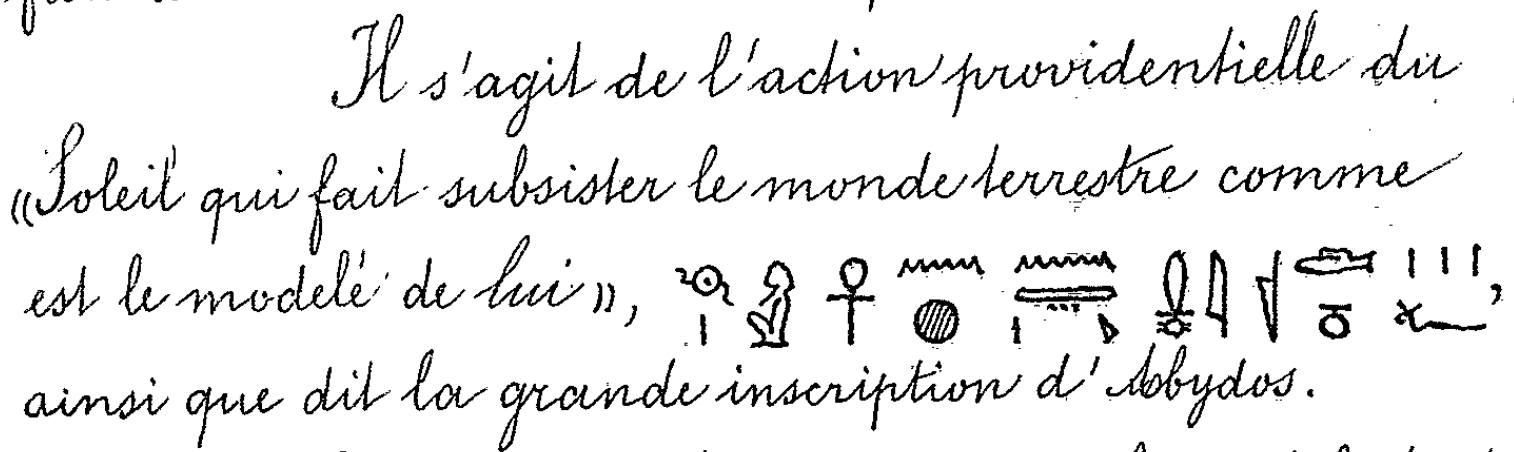 Il s'agit de l'action providentielle du
«Soleil qui fait subsister le monde terrestre comme
est le modelé de lui»,
ainsi que dit la grande inscription d'Abydos.